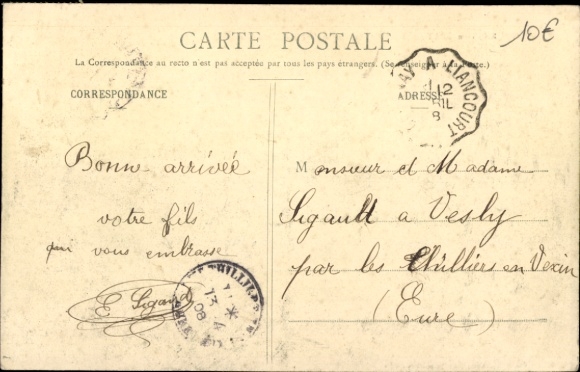 10€
CARTE POSTALE
La Correspondance au recto n'est pas acceptée par tous les pays étrangers. (Se renseigner à la Poste.)
CORRESPONDANCE
ADRESSE
A LIANCOURT
12
Bonne arrivée
votre fils
qui vous embrasse
E Sigault
Monsieur et Madame
Sigault a Vesly
par les Thilliers en Vexin
(Eure)
13
08